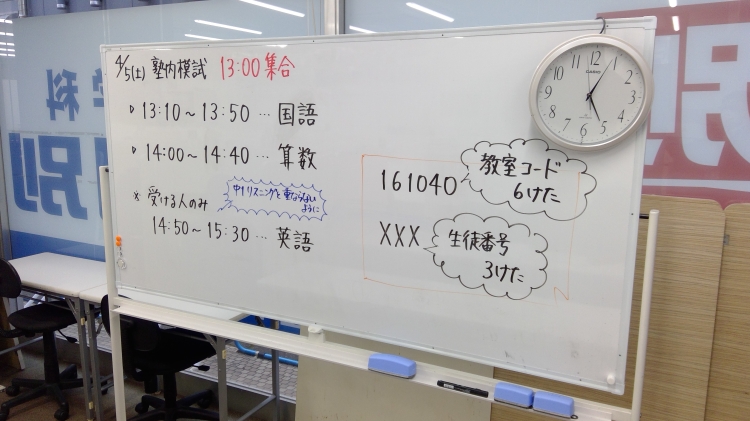 4/5(土) 塾内模試 13:00 集合
▷ 13:10～13:50 … 国語
▷ 14:00～14:40 … 算数
※ 受ける人のみ
中1リスニングと重ならない
ように
14:50～15:30 … 英語
161040
教室コード
6けた
XXX
生徒番号
3けた
12
1
2
3
4
5
6
7
8
9
10
11
CASIO
学科
別
別